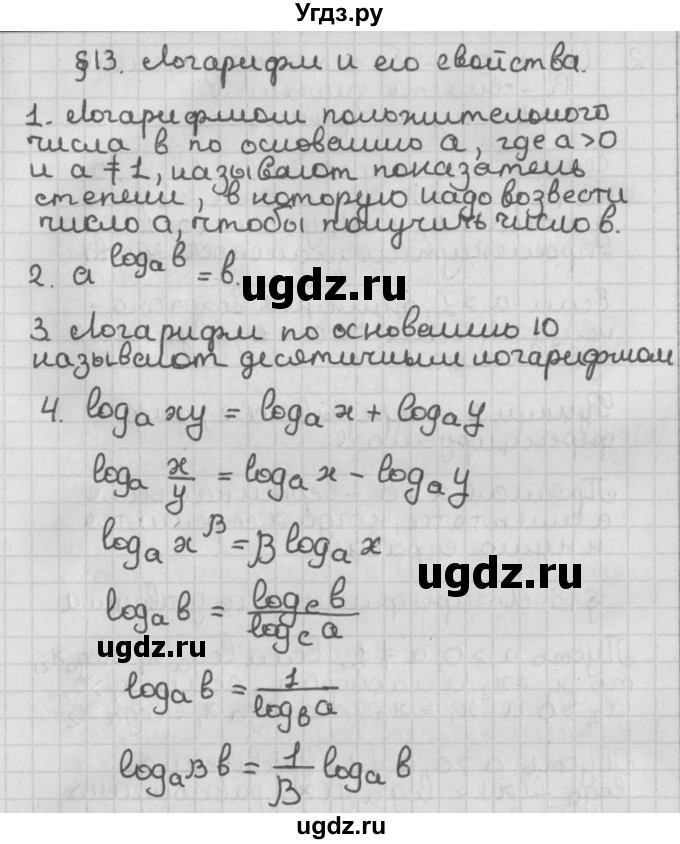 Угдз.ру
§13. Логарифм и его свойства.
1. Логарифмом положительного
числа b по основанию a, где a>0
и a≠1, называют показатель
степени, в которую надо возвести
число a, чтобы получить число b.
2. a^(log_a b) = b.
ugdz.ru
3. Логарифм по основанию 10
называют десятичным логарифмом
4. log_a xy = log_a x + log_a y
log_a x/y = log_a x - log_a y
log_a x^β = β log_a x
ugdz.ru
log_a b = log_c b / log_c a
ugdz.ru
log_a b = 1 / log_b a
log_a^β b = 1/β log_a b
ugdz.ru